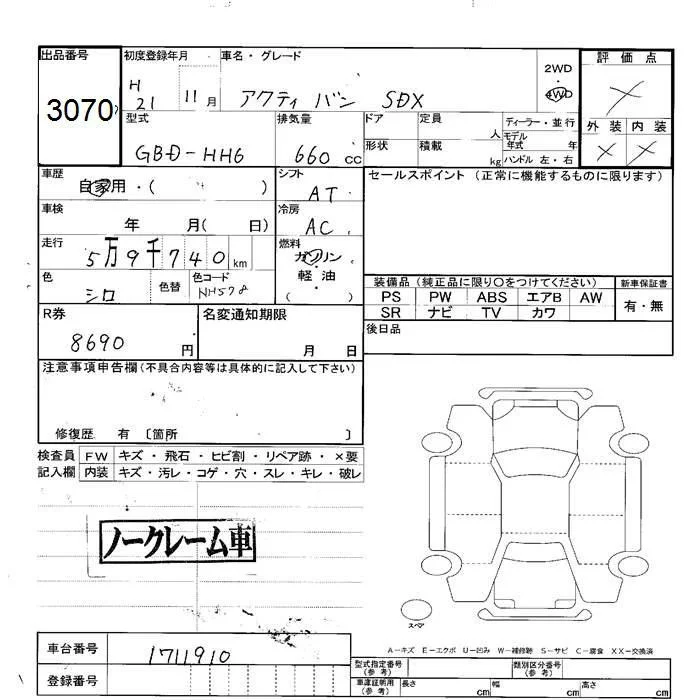 出品番号 初度登録年月 車名・グレード 2WD 4WD 評価点
3070 H 21 11月 アクティ バン SDX ×
型式 排気量 ドア 定員 人 ディーラー・並行 外装 内装
GBD-HH6 660cc 形状 積載 kg モデル年式 年 ハンドル 左・右 × ×
車歴 シフト セールスポイント (正常に機能するものに限ります)
自家用・( ) AT
車検 冷房
年 月( 日) AC
走行 燃料
5万9千740km ガソリン・軽油
( )
色 色替 色コード 装備品 (純正品に限り○をつけてください) 新車保証書
シロ NH578 PS PW ABS エアB AW 有・無
SR ナビ TV カワ
R券 名変通知期限 後日品
8690円 月 日
注意事項申告欄(不具合内容等は具体的に記入して下さい)
修復歴 有 〔箇所 〕
検査員 FW キズ・飛石・ヒビ割・リペア跡・×要
記入欄 内装 キズ・汚レ・コゲ・穴・スレ・キレ・破レ
ノークレーム車
スペア
A―キズ E―エクボ U―凹み W―補修跡 S―サビ C―腐食 XX―交換済
車台番号 1711910 型式指定番号(参考) 類別区分番号(参考)
登録番号 車庫証明用(参考) 長さ cm 幅 cm 高さ cm